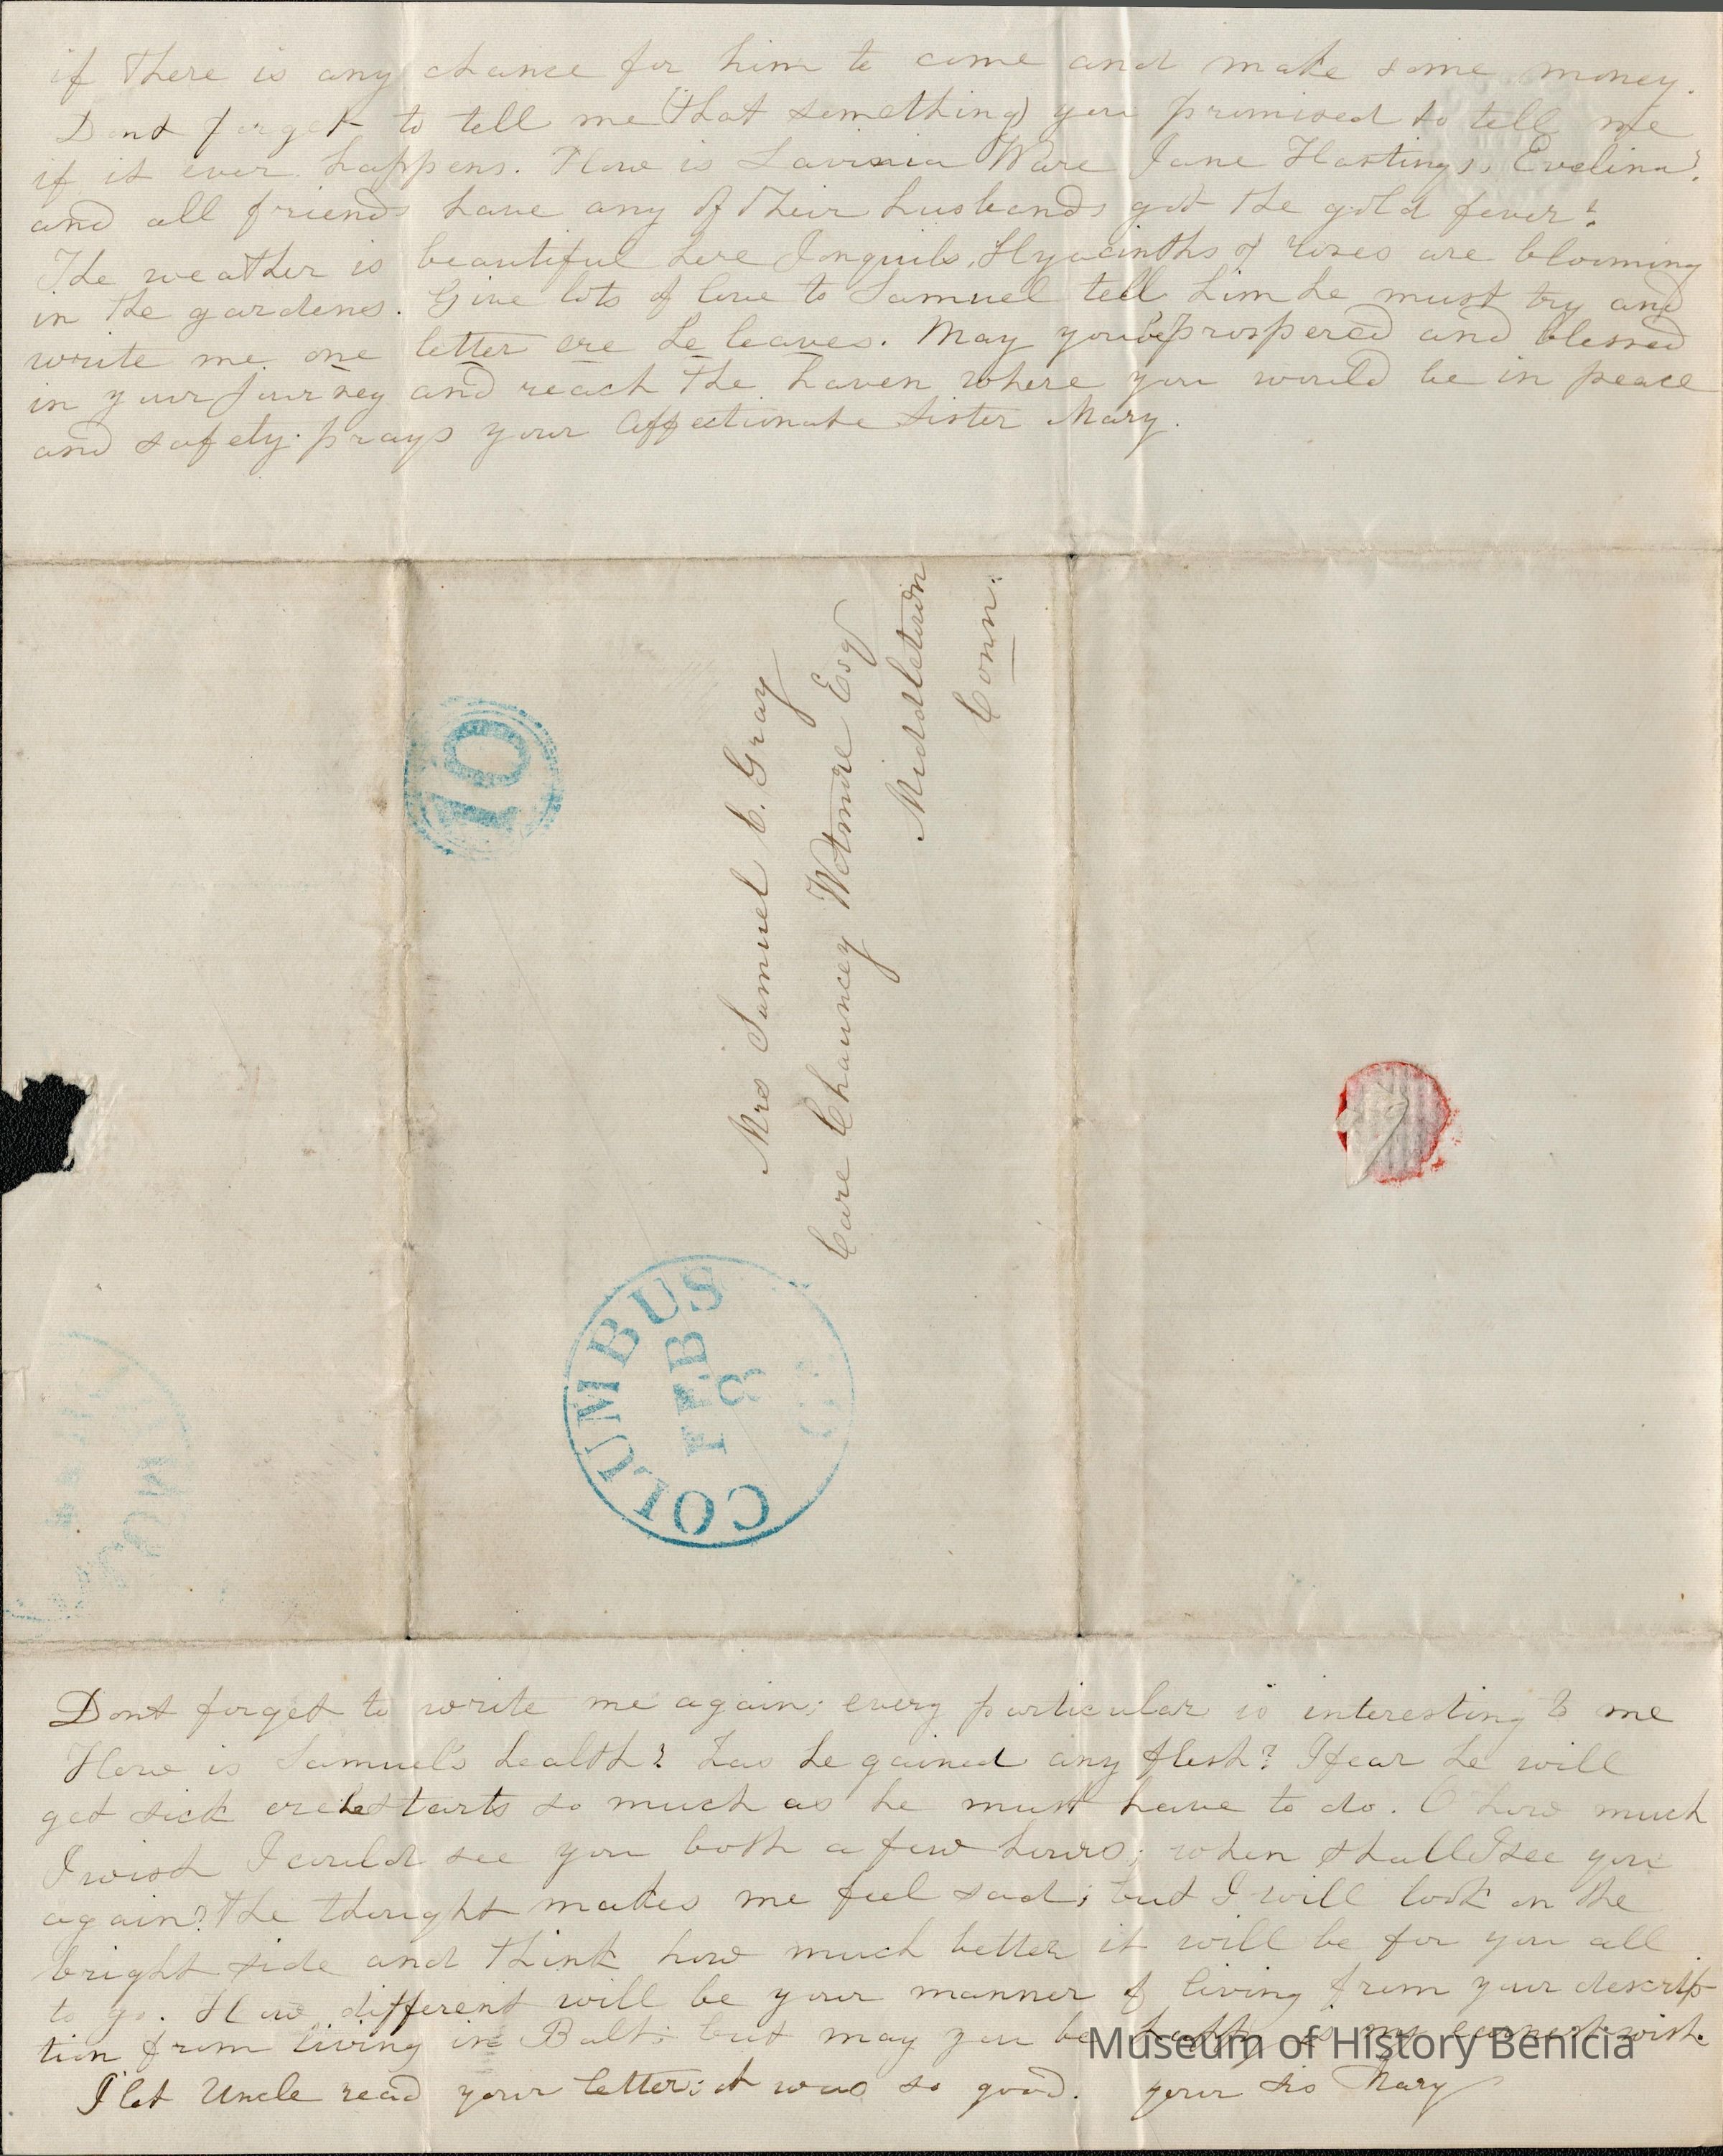 if there is any chance for him to come and make some money.
Dont forget to tell me (that something) you promised to tell me
if it ever happens. How is Lavinia Ware Jane Hastings, Evelina?
and all friends have any of their husbands got the gold fever?
The weather is beautiful here Jonquils, Hyacinths & roses are blooming
in the gardens. Give lots of love to Samuel tell him he must try and
write me one letter ere he leaves. May you be prospered and blessed
in your journey and reach the haven where you would be in peace
and safely prays your affectionate sister Mary.
10
Mrs Samuel C. Gray
Care Chauncey Wetmore Esq
Middletown
Conn:
COLUMBUS
FEB
8
Dont forget to write me again; every particular is interesting to me
How is Samuel's health? has he gained any flesh? I fear he will
get sick ere he starts so much as he must have to do. O how much
I wish I could see you both a few hours; when shall I see you
again? the thought makes me feel sad; but I will look on the
bright side and think how much better it will be for you all
to go. How different will be your manner of living from your descrip-
tion from living in Balt: but may you be happy is my earnest wish.
I let Uncle read your letter; it was so good. your sis Mary
Museum of History Benicia